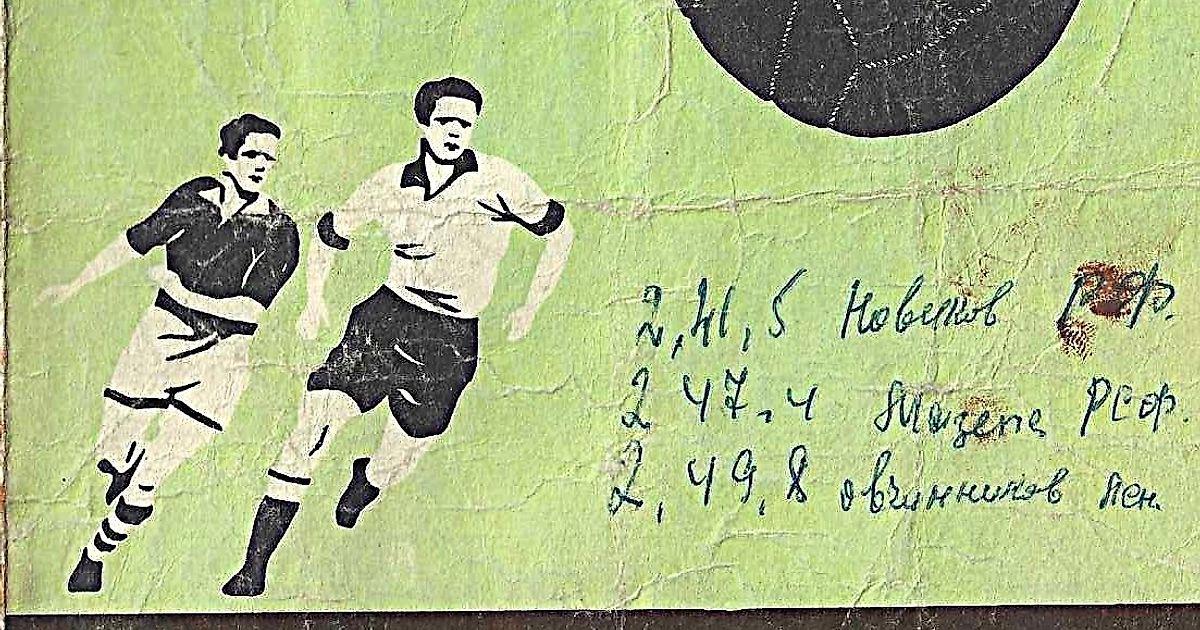 2,41,5 Новиков РСФ.
2 47,4 Мазепа РСФ.
2,49,8 овчинников Лен.